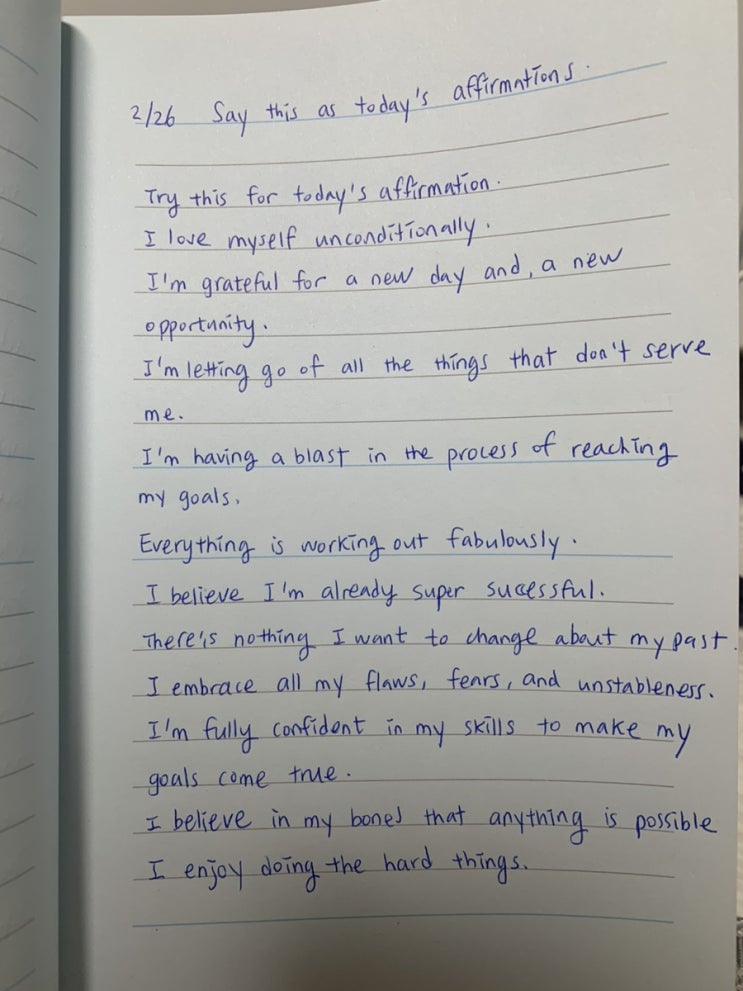 2/26 Say this as today's affirmations.
Try this for today's affirmation.
I love myself unconditionally.
I'm grateful for a new day and, a new
opportunity.
I'm letting go of all the things that don't serve
me.
I'm having a blast in the process of reaching
my goals.
Everything is working out fabulously.
I believe I'm already super sucessful.
There's nothing I want to change about my past.
I embrace all my flaws, fears, and unstableness.
I'm fully confident in my skills to make my
goals come true.
I believe in my bones that anything is possible
I enjoy doing the hard things.